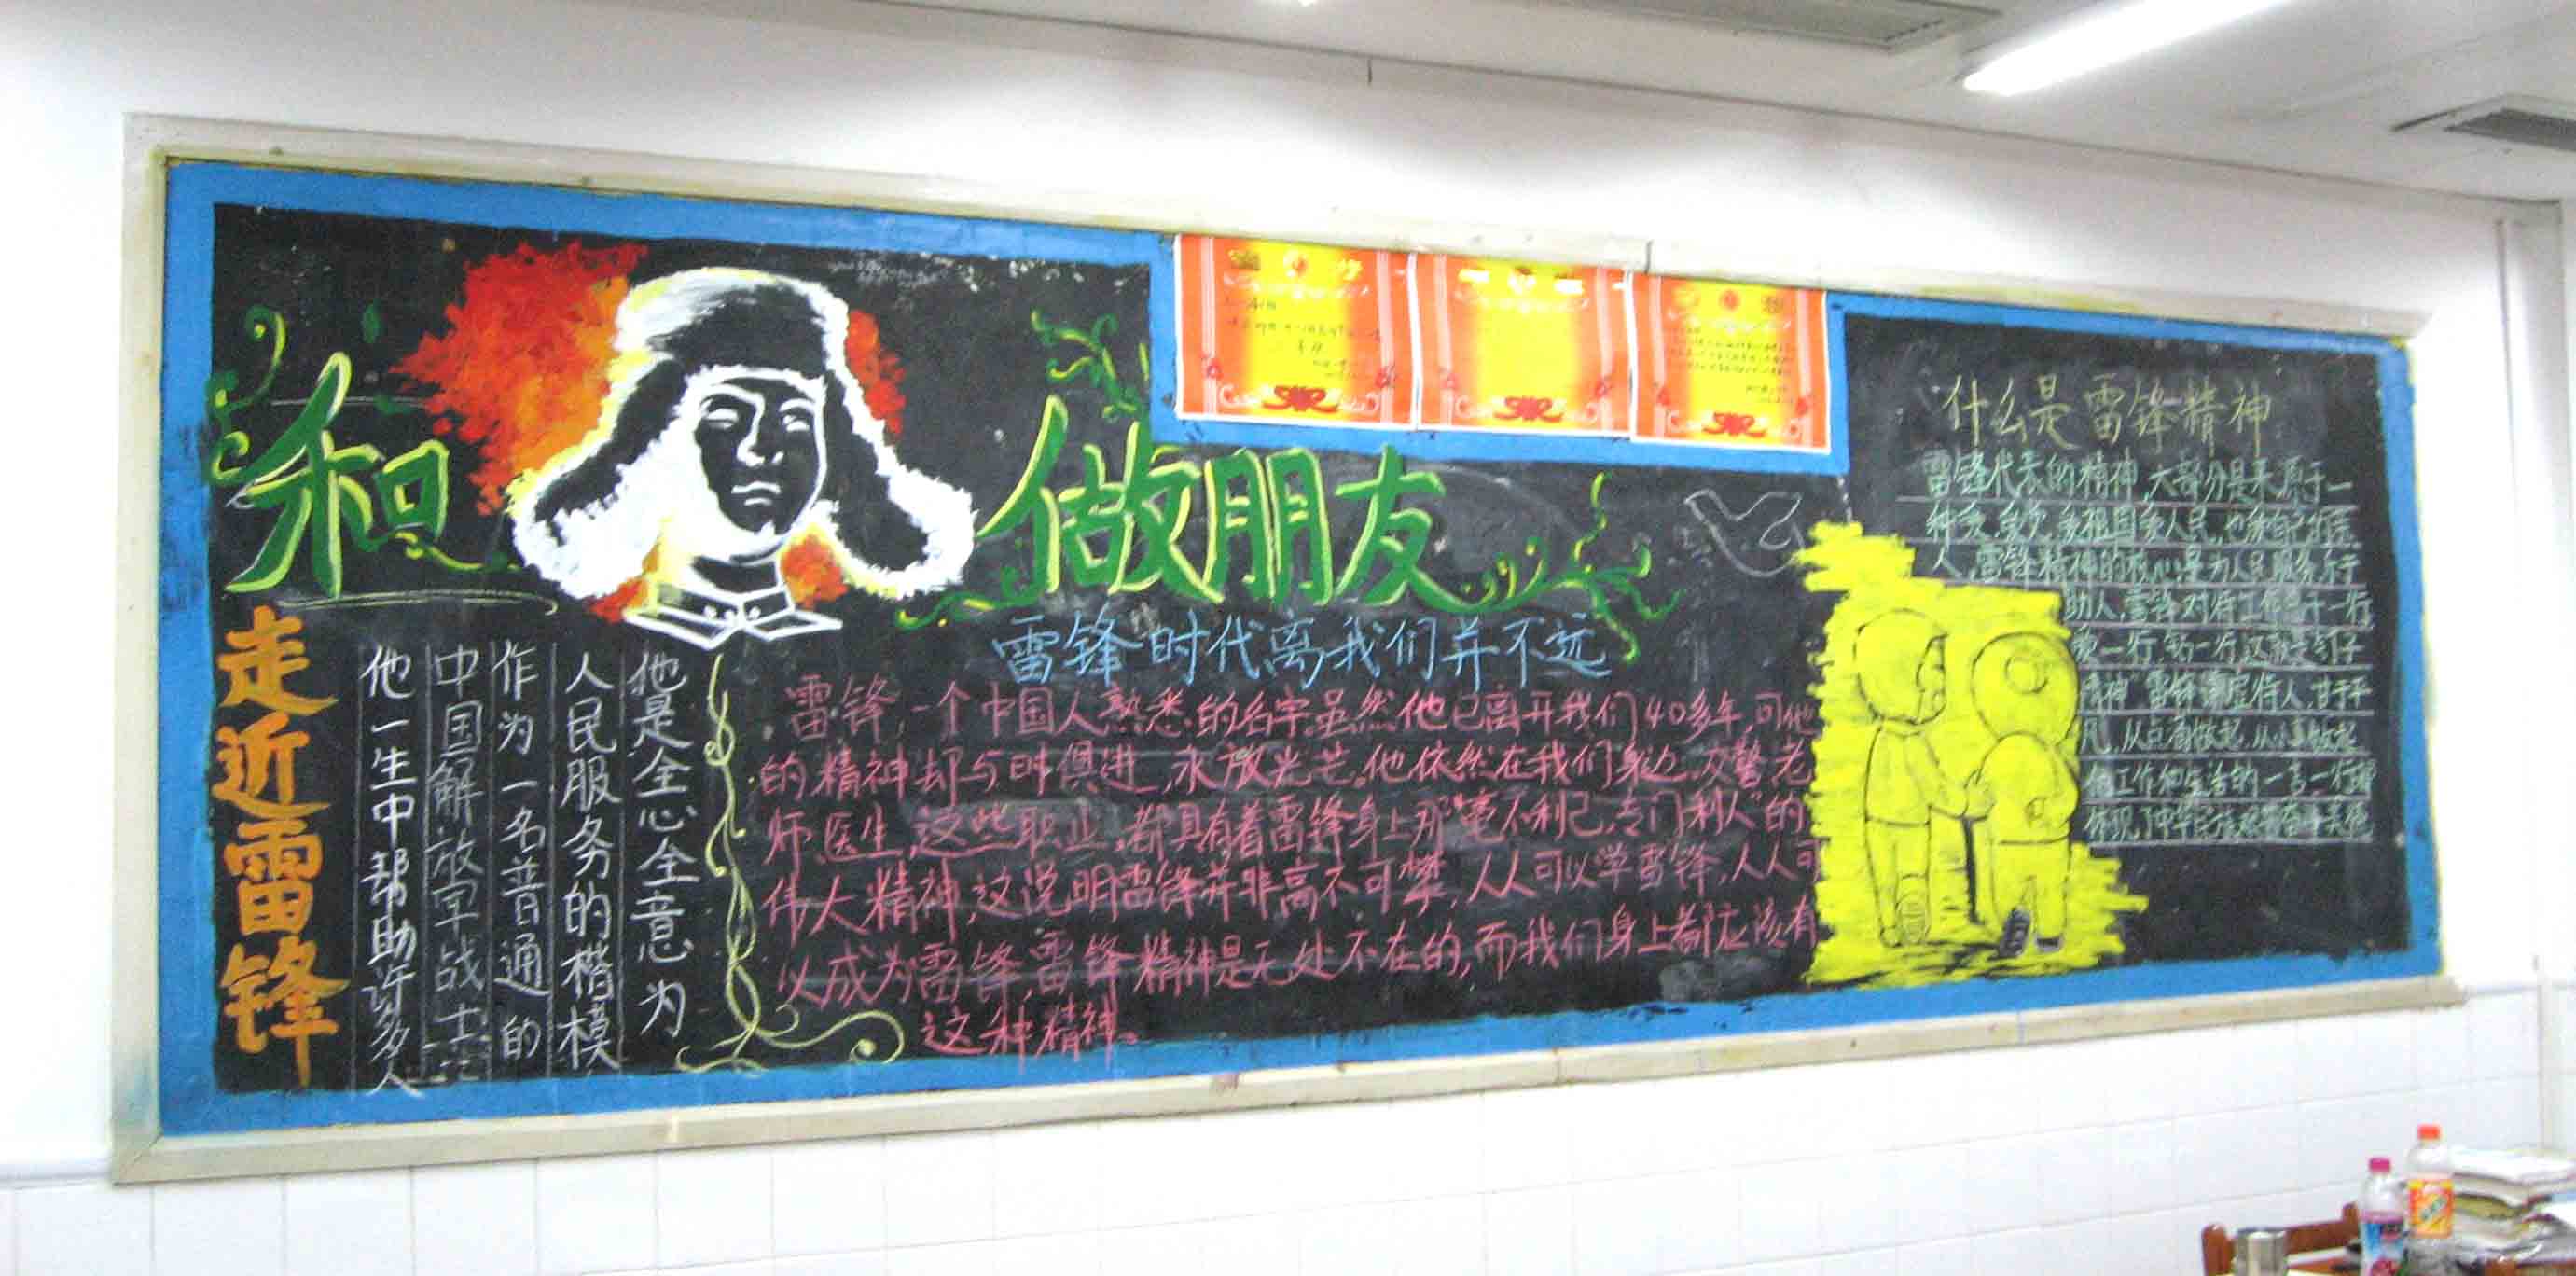 和
做朋友
走近雷锋
他一生中帮助许多人
中国解放军战士
作为一名普通的
人民服务的楷模
他是全心全意为
雷锋时代离我们并不远
雷锋,一个中国人熟悉的名字.虽然他已离开我们40多年,可他
的精神却与时俱进,永放光芒.他依然在我们身边.交警.老
师.医生,这些职业,都具有着雷锋身上那“毫不利己,专门利人”的
伟大精神,这说明雷锋并非高不可攀,人人可以学雷锋,人人可
以成为雷锋,雷锋精神是无处不在的,而我们身上都应该有
这种精神。
什么是雷锋精神
雷锋代表的精神,大部分是来原于一
种爱.爱党.爱祖国爱人民,他爱自己
人,雷锋精神的核心是为人民服务乐于
助人.雷锋对待工作干一行
爱一行,钻一行这就是钉子
精神”雷锋谦虚待人,甘于平
凡,从点滴做起,从小事做起
他工作和生活的一言一行
体现了中华